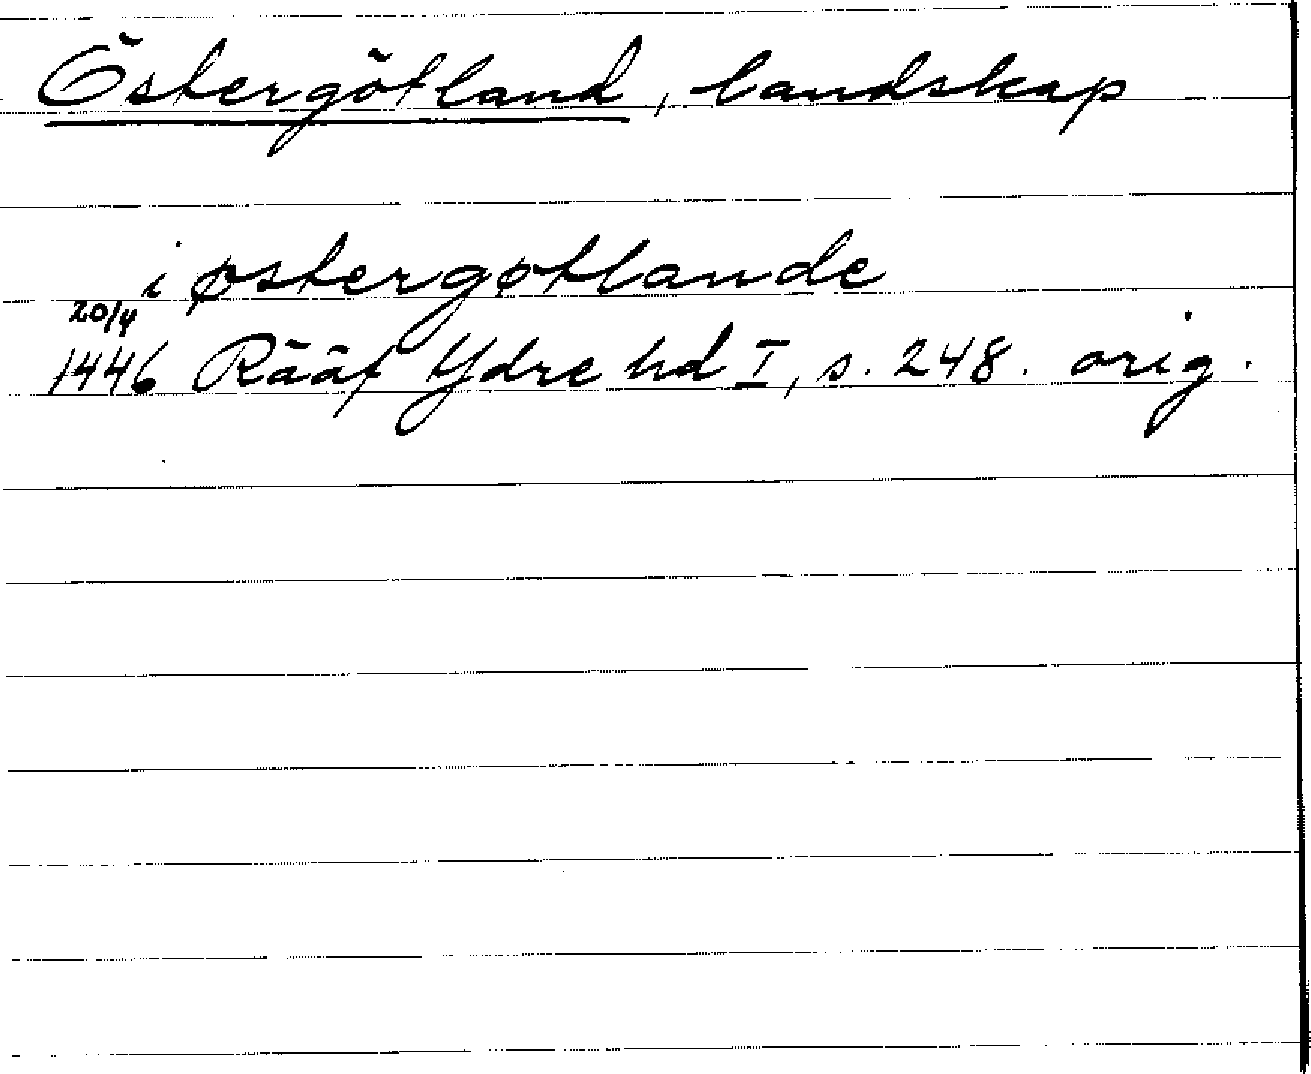 Östergötland, landskap
i østergøtlande
20/4
1446 Rääf Ydre hd I, s. 248. orig.